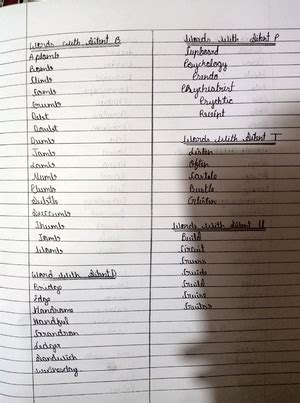 Words with Silent B
Aplomb
Bomb
Climb
Comb
Crumb
Debt
Doubt
Dumb
Jamb
Lamb
Numb
Plumb
Subtle
Succumb
Thumb
Tomb
Womb
Word with Silent D
Bridge
Edge
Handsome
Handful
Grandson
Ledger
Sandwich
Wednesday
Words With Silent P
Cupboard
Psychology
Pseudo
Psychiatrist
Psychic
Receipt
Words With Silent T
Listen
Often
Castle
Bustle
Glisten
Words With Silent U
Build
Circuit
Guess
Guide
Guild
Guise
Guitar